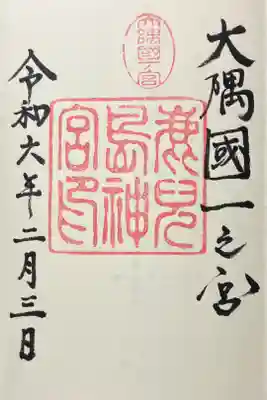 大隅國一之宮
鹿兒
島神
宮印
令和六年二月三日